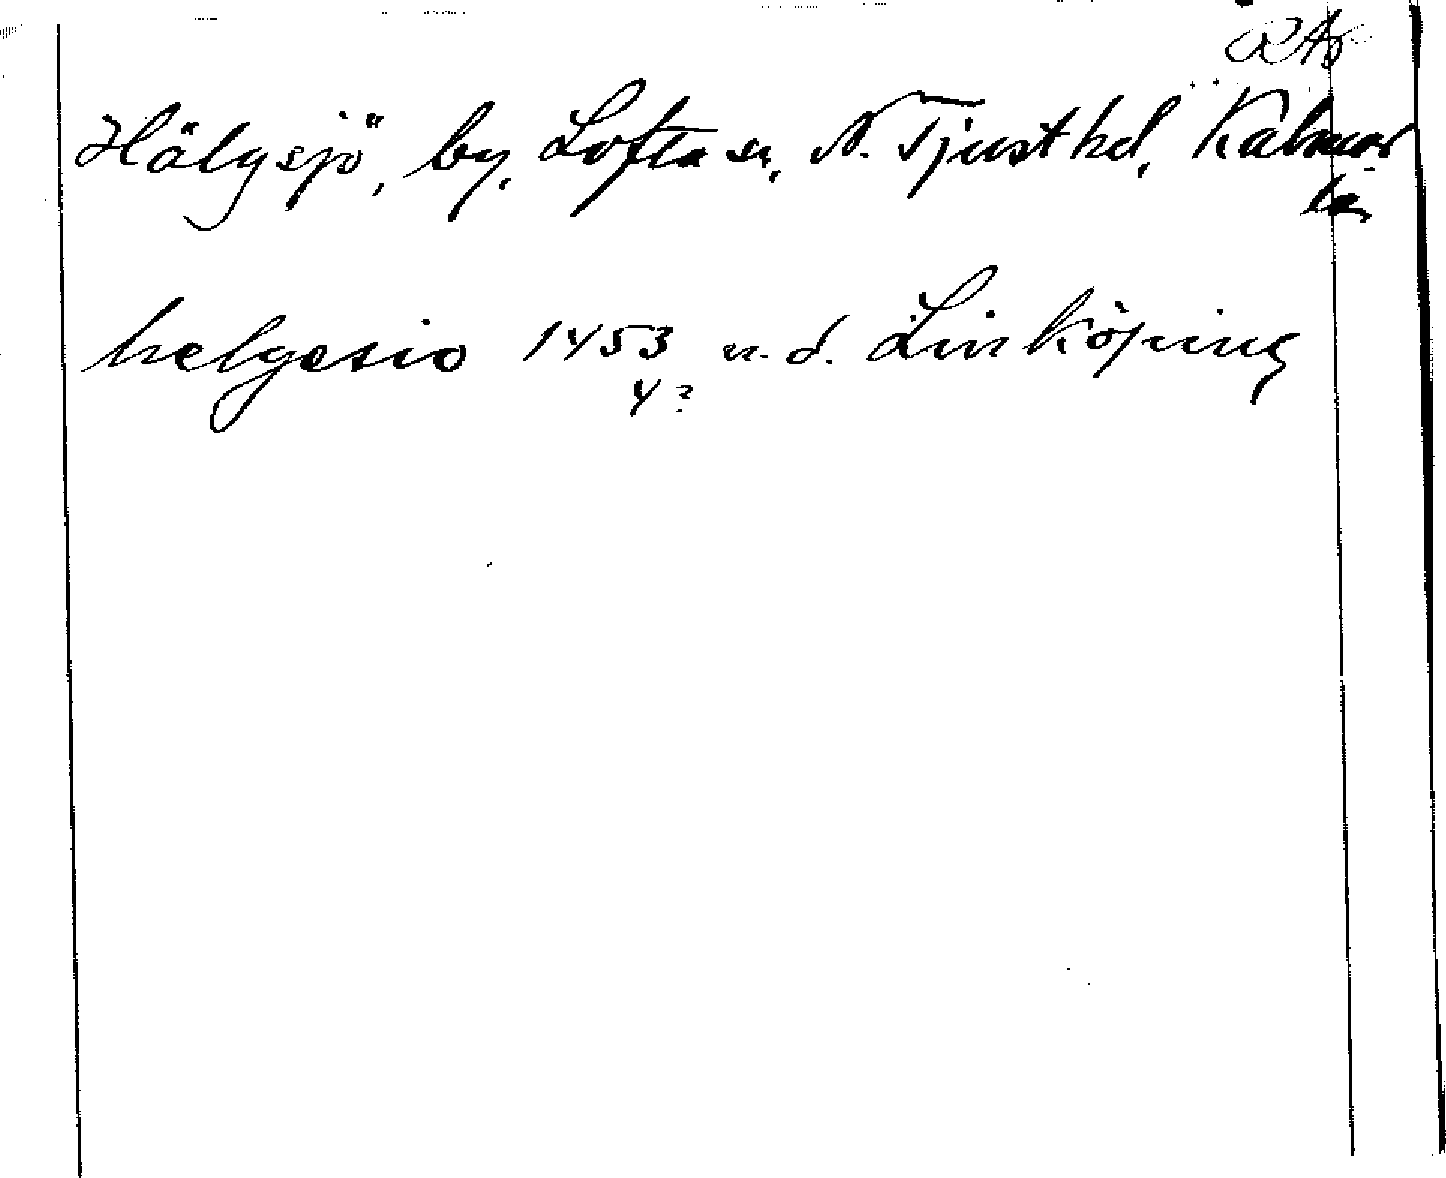 RAp
Hälgsjö, by, Lofta sn, N. Tjust hd, Kalmar
län
helgesio 1453 u. d. Linköping
4?